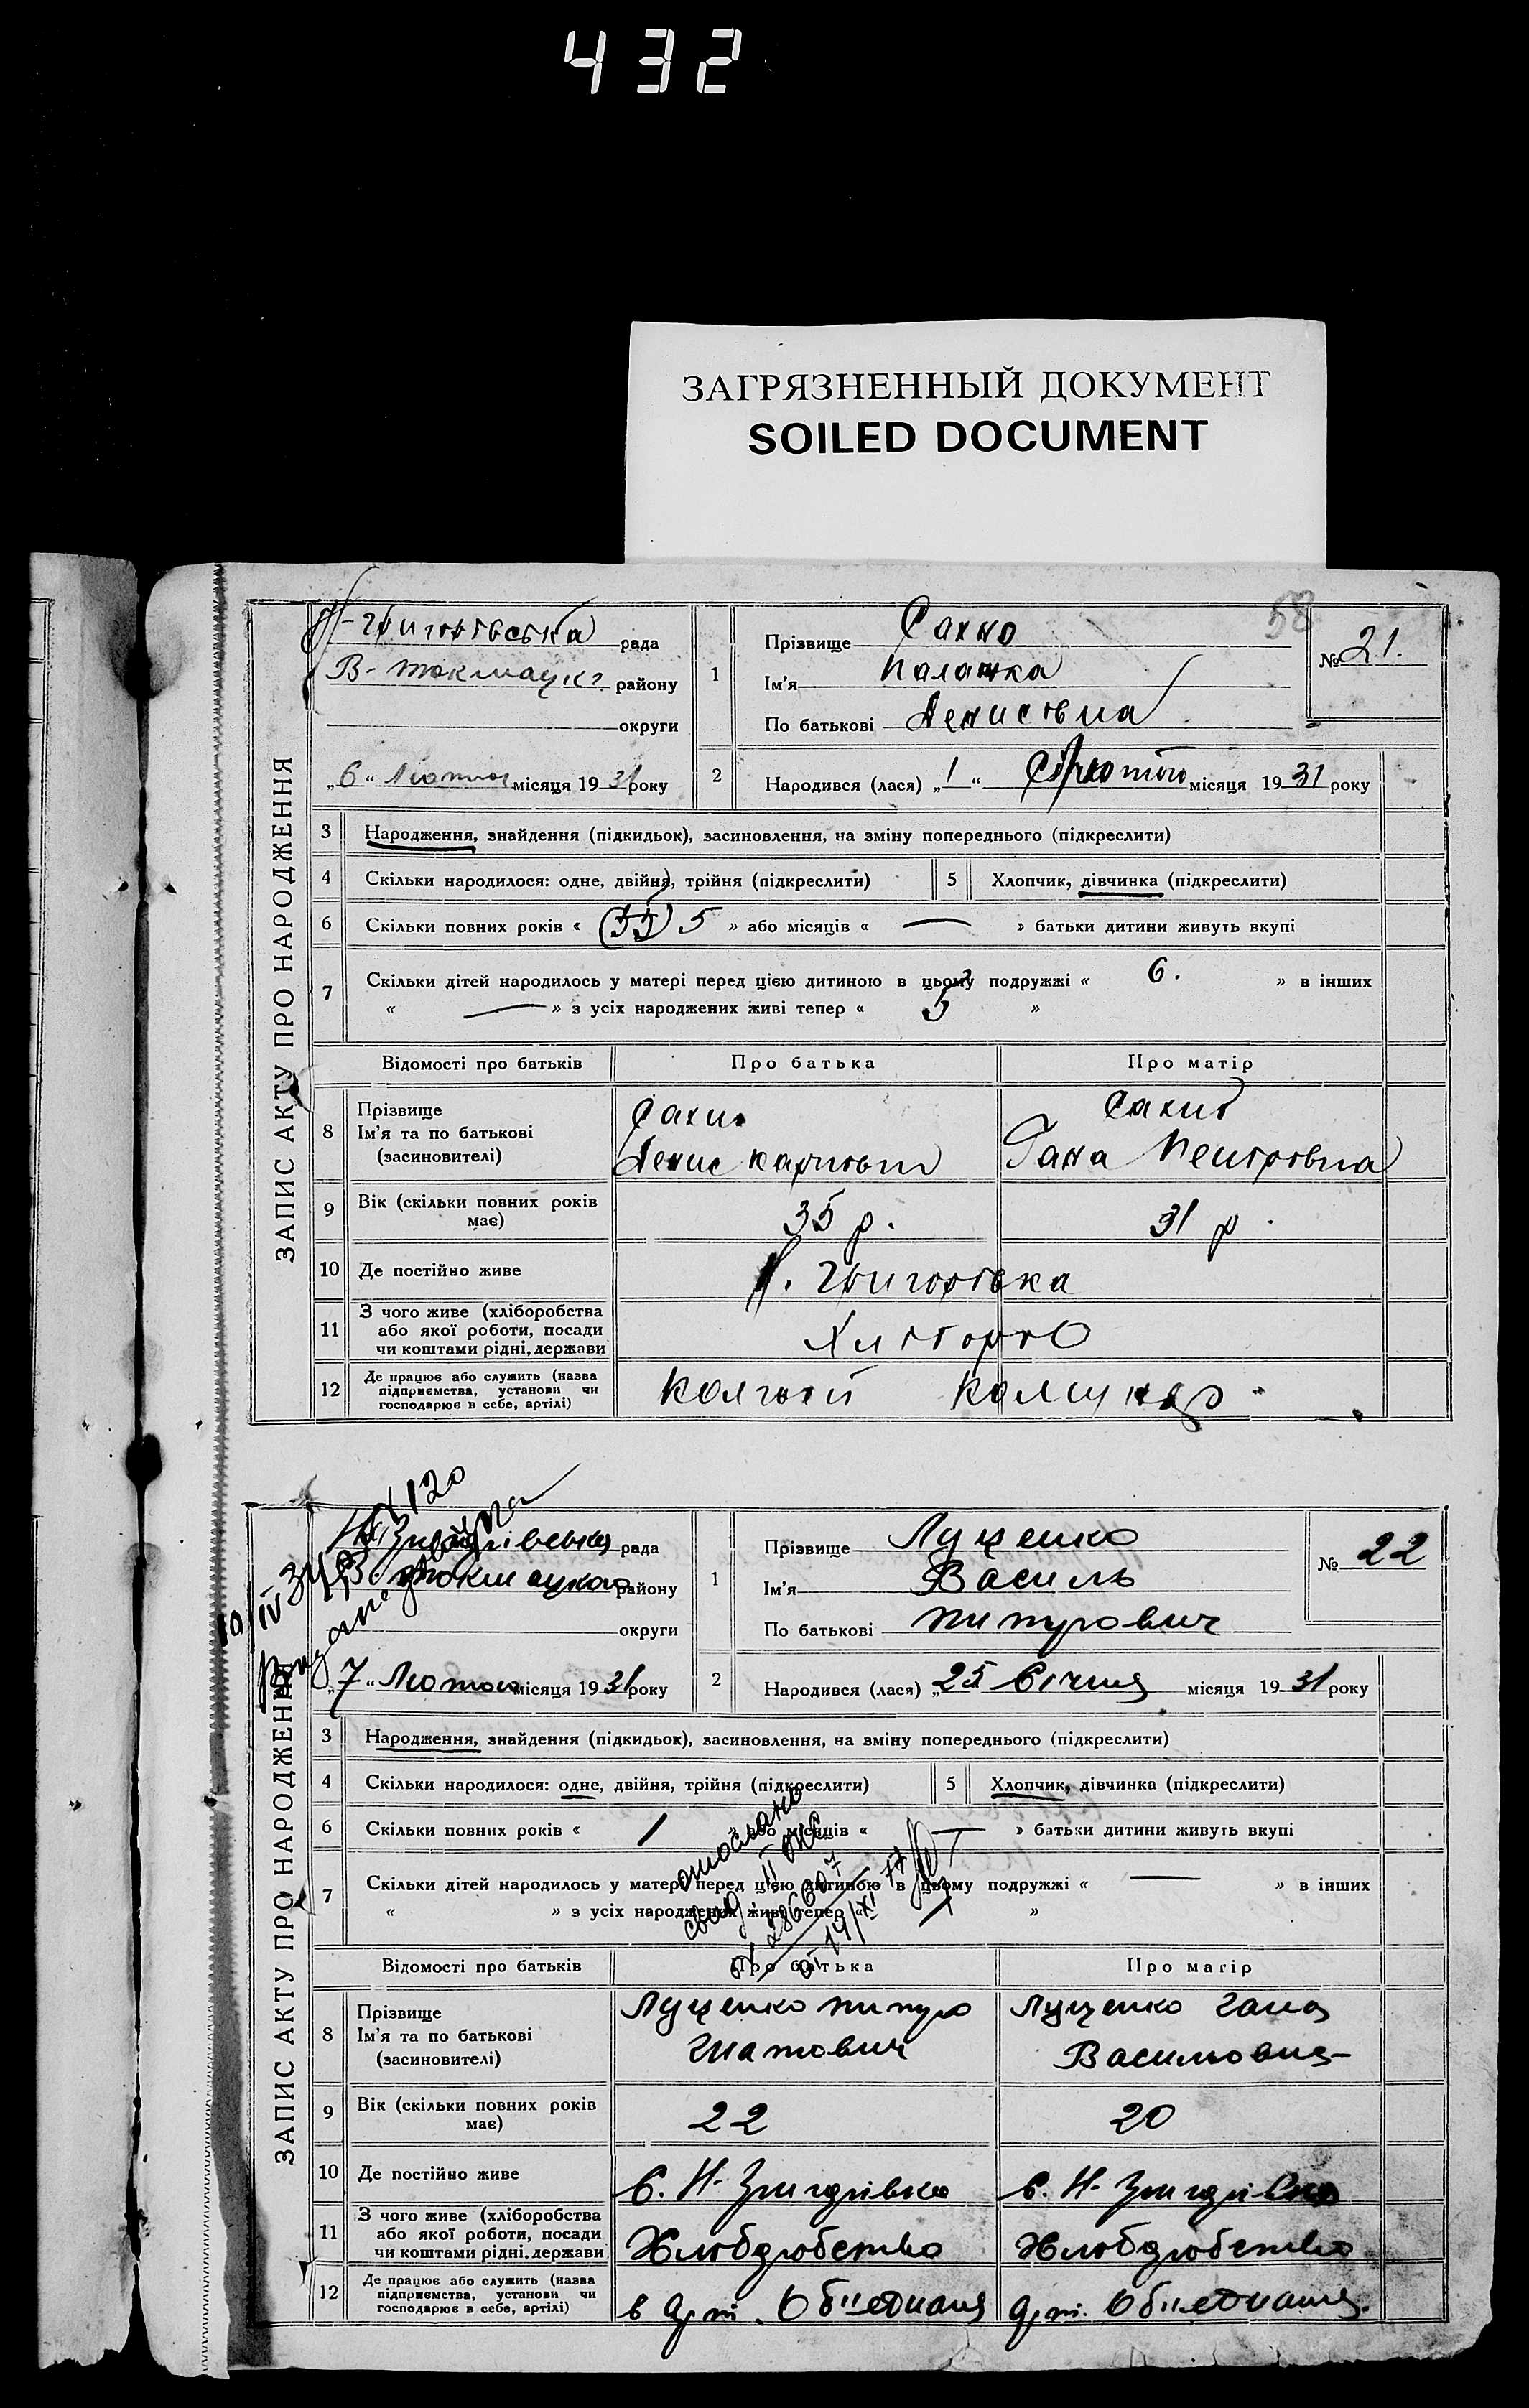 432
ЗАГРЯЗНЕННЫЙ ДОКУМЕНТ
SOILED DOCUMENT
58
ЗАПИС АКТУ ПРО НАРОДЖЕННЯ
Н-Григорівська рада
В-Токмацьк. району
округи
„6“ Лютого місяця 1931 року
1
Прізвище Сахно
Ім'я Палажка
По батькові Денисівна
№ 21.
2
Народився (лася) „1“ Лютого місяця 1931 року
3 Народження, знайдення (підкидьок), засиновлення, на зміну попереднього (підкреслити)
4 Скільки народилося: одне, двійня, трійня (підкреслити) 5 Хлопчик, дівчинка (підкреслити)
6 Скільки повних років « (55) 5 » або місяців « — » батьки дитини живуть вкупі
7 Скільки дітей народилось у матері перед цією дитиною в цьому подружжі « 6. » в інших
« — » з усіх народжених живі тепер « 5 »
Відомості про батьків Про батька Про матір
8 Прізвище Ім'я та по батькові (засиновителі)
Сахно Сахно
Денис Гана Петровна
9 Вік (скільки повних років має) 35 р. 31 р.
10 Де постійно живе Н. Григорівка
11 З чого живе (хліборобства або якої роботи, посади чи коштами рідні, держави
12 Де працює або служить (назва підприємства, установи чи господарює в себе, артілі) Комунар
ЗАПИС АКТУ ПРО НАРОДЖЕННЯ
Н. Григорівська рада
В. Токмацького району
округи
„7“ Лютого місяця 1931 року
1
Прізвище Луценко
Ім'я Василь
По батькові Питрович
№ 22
2
Народився (лася) „25 Січня місяця 1931 року
3 Народження, знайдення (підкидьок), засиновлення, на зміну попереднього (підкреслити)
4 Скільки народилося: одне, двійня, трійня (підкреслити) 5 Хлопчик, дівчинка (підкреслити)
6 Скільки повних років « 1 » або місяців « — » батьки дитини живуть вкупі
7 Скільки дітей народилось у матері перед цією дитиною в цьому подружжі « — » в інших
« » з усіх народжених живі тепер « »
отослано
Відомості про батьків Про батька Про матір
8 Прізвище Ім'я та по батькові (засиновителі)
Луценко Питро Луценко Гана
Гнатович Василювна
9 Вік (скільки повних років має) 22 20
10 Де постійно живе с. Н-Григорівка с. Н-Григорівка
11 З чого живе (хліборобства або якої роботи, посади чи коштами рідні, держави Хлюборобство Хлюборобство
12 Де працює або служить (назва підприємства, установи чи господарює в себе, артілі) в Арт. Обиеднаня Арт. Обиеднаня.